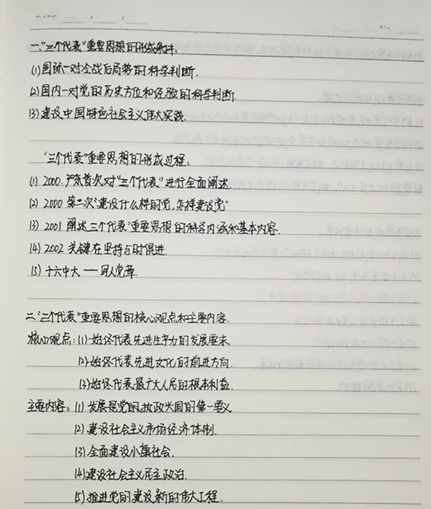 一."三个代表"重要思想的形成条件:
(1)国际—对冷战后局势的科学判断.
(2)国内—对党的历史方位和经验的科学判断
(3)建设中国特色社会主义伟大实践.
"三个代表"重要思想的形成过程:
(1) 2000.广东首次对"三个代表"进行全面阐述
(2) 2000 第二次"建设什么样的党,怎样建设党"
(3) 2001 阐述三个代表"重要思想的科学内涵和基本内容.
(4) 2002 关键在坚持与时俱进.
(5) 十六中大——写入党章
二."三个代表"重要思想的核心观点和主要内容.
核心观点:(1)始终代表先进生产力的发展要求
(2)始终代表先进文化的前进方向.
(3)始终代表最广大人民的根本利益.
主要内容:(1)发展是党的执政兴国的第一要义
(2)建设社会主义市场经济体制.
(3)全面建设小康社会.
(4)建设社会主义民主政治.
(5)推进党的建设新的伟大工程.